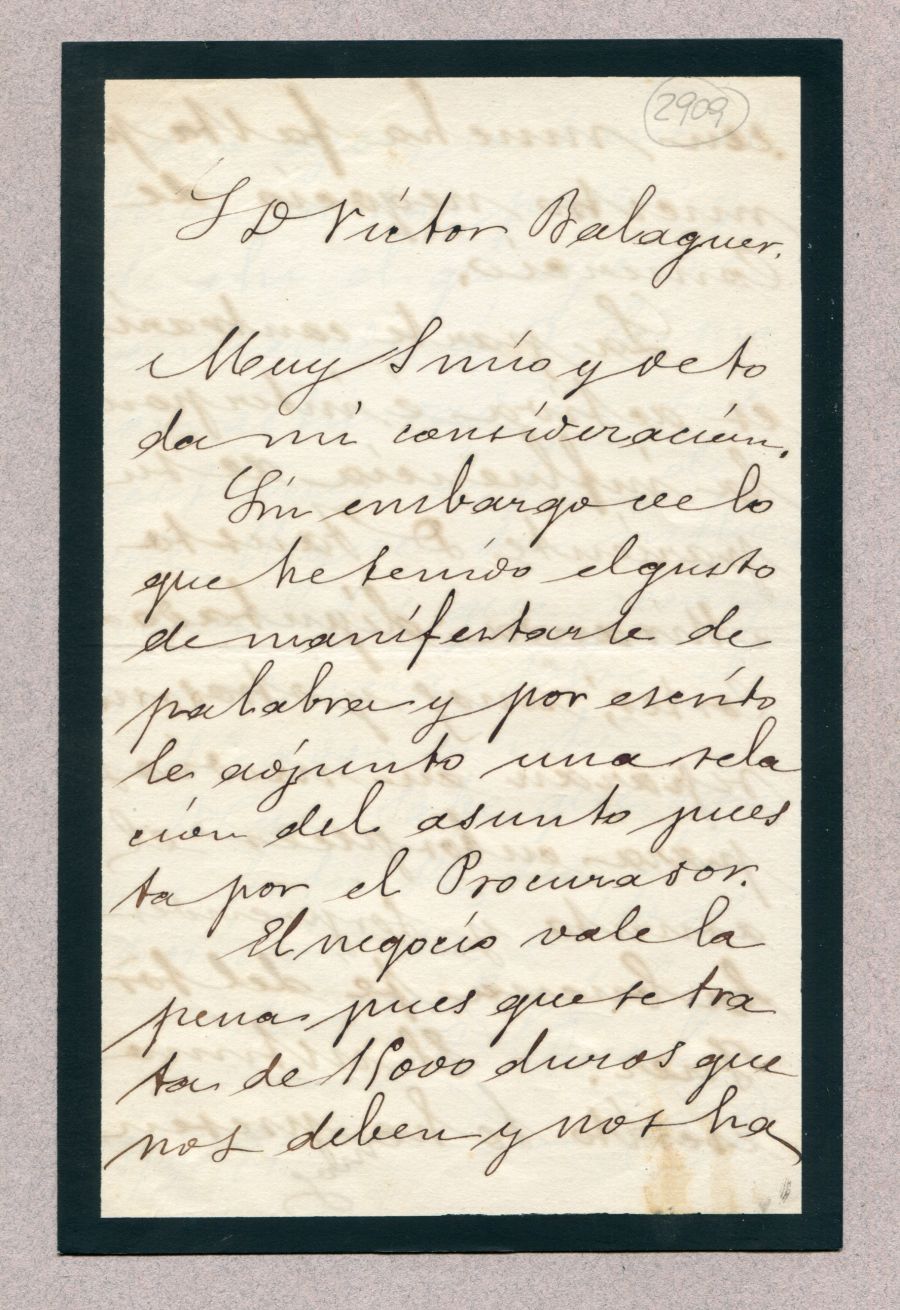 2909
S D Víctor Balaguer.
Muy S mío y de to
da mi consideración.
Sin embargo de lo
que he tenido el gusto
de manifestarle de
palabra y por escrito
le adjunto una rela
ción del asunto pues
ta por el Procurador.
El negocio vale la
pena pues que se tra
ta de 15000 duros que
nos deben y nos ha